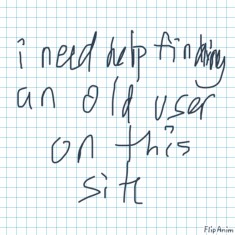 i need help finding
an old user
on this
site
FlipAnim